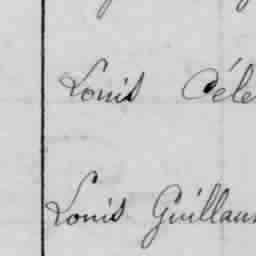 Louis Céle
Louis Guillau